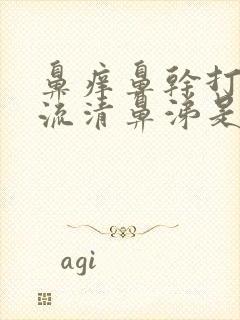 鼻痒鼻幹打
流清鼻涕是
agi